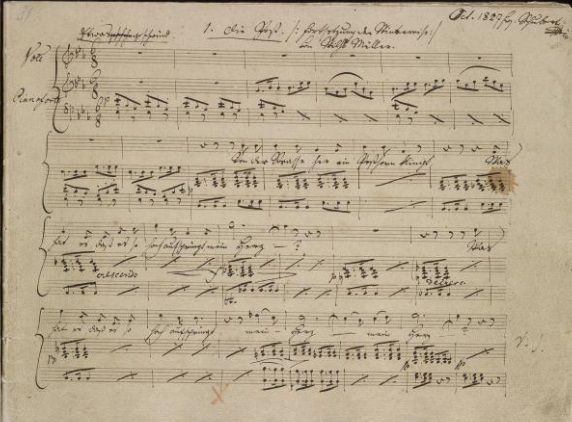 Oct. 1827 Frz. Schubert
1. Die Post. /: Fortsetzung der Winterreise :/
Etwas
von Wilh. Müller.
Voce
Pianoforte
Von der Strasse her ein Posthorn klingt. Was
hat es dass es so hoch aufspringt mein Herz — ? Was
crescendo
decresc
hat es dass es so hoch aufspringt mein — Herz — mein Herz
V. S.